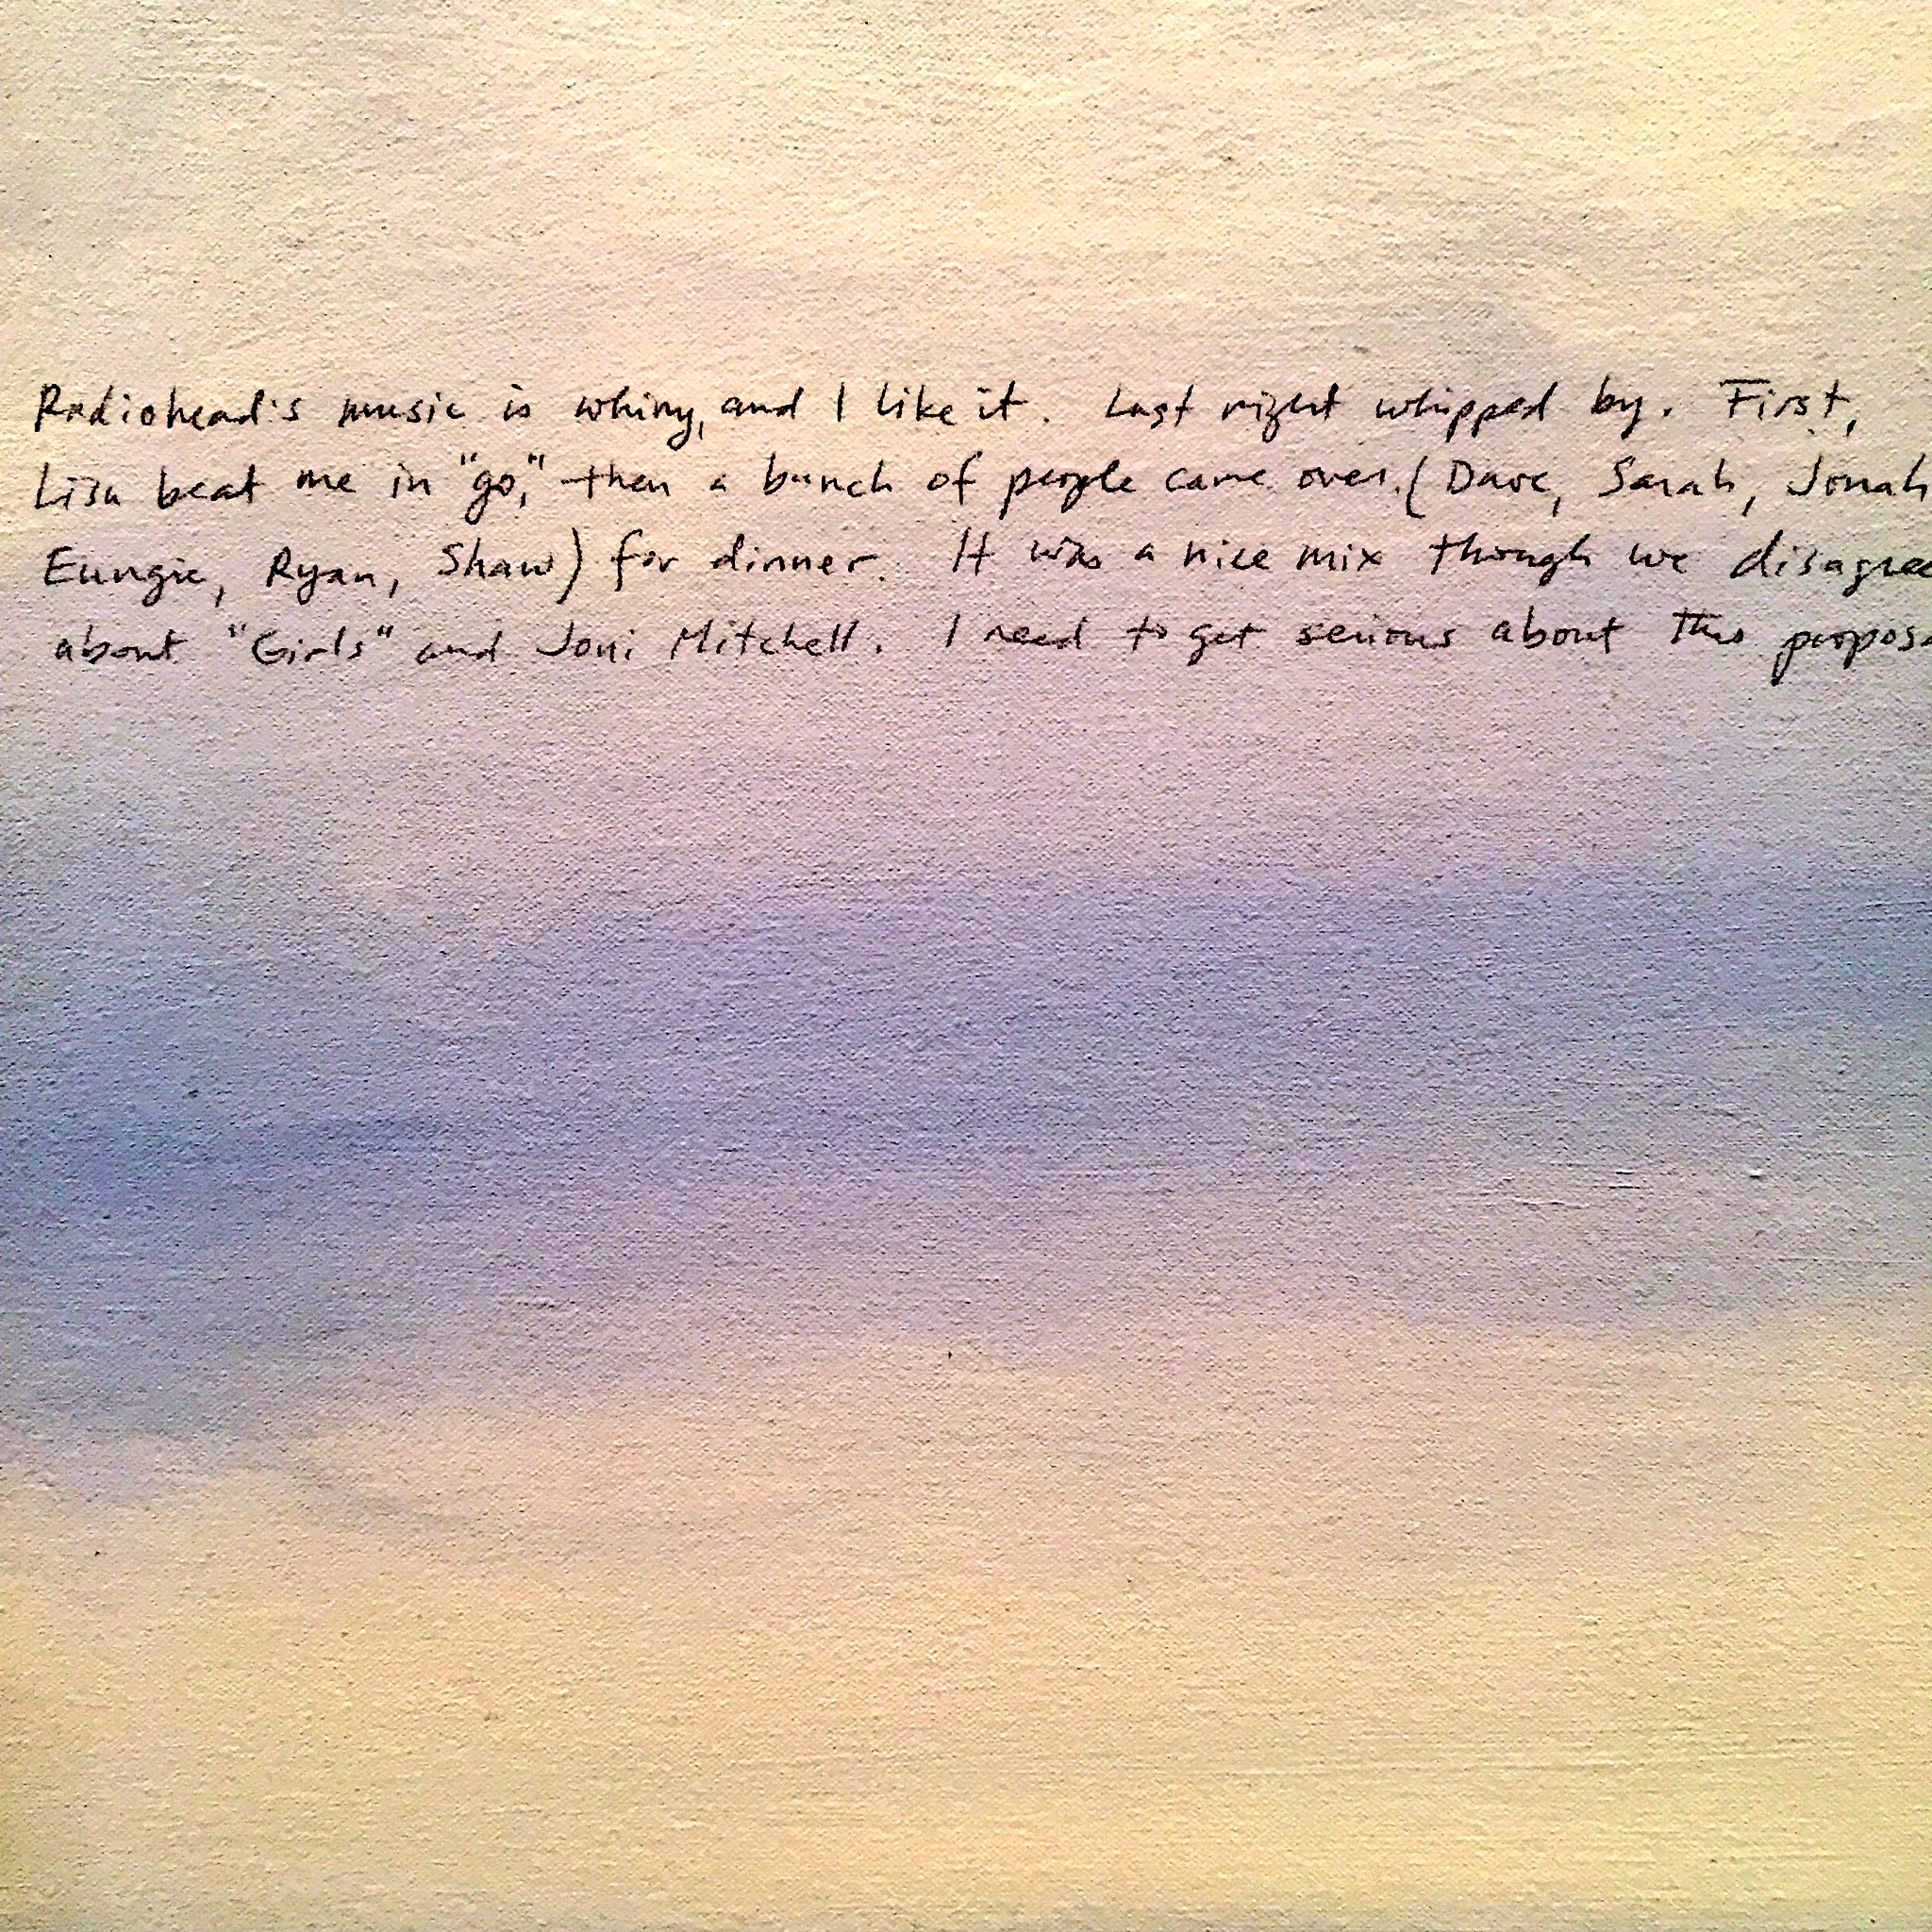 Radiohead's music is whiny, and I like it. Last night whipped by. First,
Lisa beat me in "go," then a bunch of people came over. (Dave, Sarah, Jonah
Eungie, Ryan, Shaw) for dinner. It was a nice mix though we disagree
about "Girls" and Joni Mitchell. I need to get serious about this propos